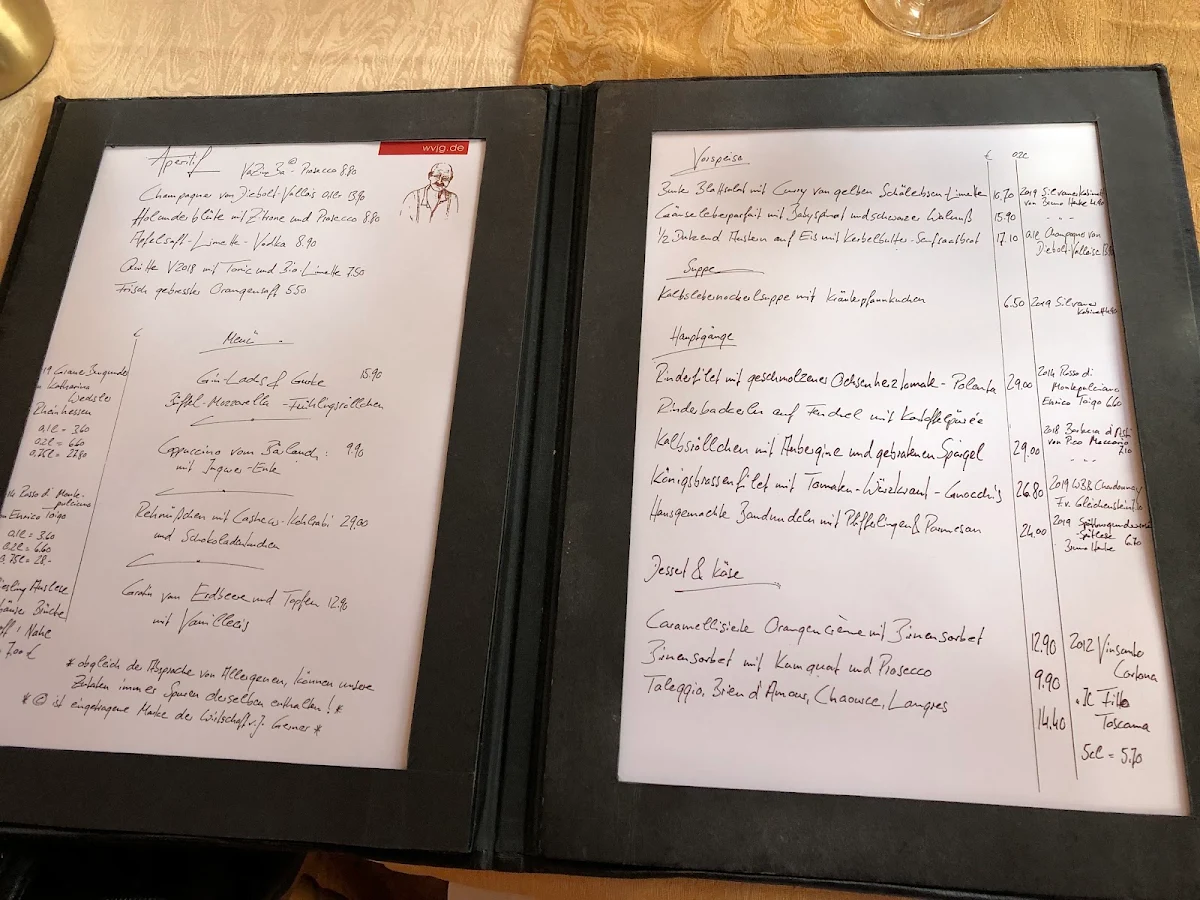 wvjg.de
Aperitif
VaZiBa© - Prosecco 8.80
Champagne von Diebolt-Vallois 0.1l 13.90
Holunderblüte mit Zitrone und Prosecco 8.80
Apfelsaft-Limette-Vodka 8.90
Quitte V2018 mit Tonic und Bio-Limette 7.50
Frisch gepresster Orangensaft 5.50
€
Menü
Gin-Lachs & Gurke 15.90
Büffel-Mozzarella-Frühlingsröllchen
Cappuccino vom Bärlauch: 9.90
mit Ingwer-Ente
Rehnüßchen mit Cashew-Kohlrabi 29.00
und Schokoladenkuchen
Gratin vom Erdbeere und Topfen 12.90
mit Vanilleeis
19 Grauer Burgunder
Katharina
Wechsler
Rheinhessen
0.1l = 3.60
0.2l = 6.60
0.75l = 22.80
14 Rosso di Monte-
pulciano
Enrico Toigo
0.1l = 3.60
0.2l = 6.60
0.75l = 21.-
iesling Auslese
häuser Brücke
ff, Nahe
7.00 €
* obgleich der Absprache von Allergenen, können unsere
Zutaten immer Spuren derselben enthalten! *
* © ist eingetragene Marke der Wirtschaft v.J. Gerner *
Vorspeise € 0.2l
Bunter Blattsalat mit Curry von gelben Schälerbsen-Limette 10.70 2019 Silvaner Kabinett
von Bruno Hanke 4.40
Gänseleberparfait mit Babyspinat und schwarzer Walnuß 15.90 - - -
1/2 Dutzend Austern auf Eis mit Kerbelbutter-Senfsaatbrot 17.10 0.1l Champagne von
Diebolt-Vallois
Suppe
Kalbslebernockerlsuppe mit Kräuterpfannkuchen 6.50 2019 Silvaner
Kabinett
Hauptgänge
Rinderfilet mit geschmolzener Ochsenherztomate-Polenta 29.00 2014 Rosso di
Montepulciano
Enrico Toigo 6.60
Rinderbackerln auf Fenchel mit Kartoffelpürée
Kalbsröllchen mit Aubergine und gebratenem Spargel 29.00 2018 Barbera d'Asti
von Pico Maccario
7.10
- - -
Königsbrassenfilet mit Tomaten-Würzkraut-Gnocchis 26.80 2019 WB & Chardonnay
F.v. Gleichenstein
Hausgemachte Bandnudeln mit Pfifferlingen & Parmesan 24.00 2019 Spätburgunder
Spätlese 6.70
Bruno Hanke
Dessert & Käse
Caramellisierte Orangencrème mit Birnensorbet 12.90 2012 Vinsanto
Cortona
Birnensorbet mit Kumquat und Prosecco 9.90
Il Fitto
Taleggio, Brien d'Amour, Chaource, Langres 14.40 Toscana
5cl = 5.70